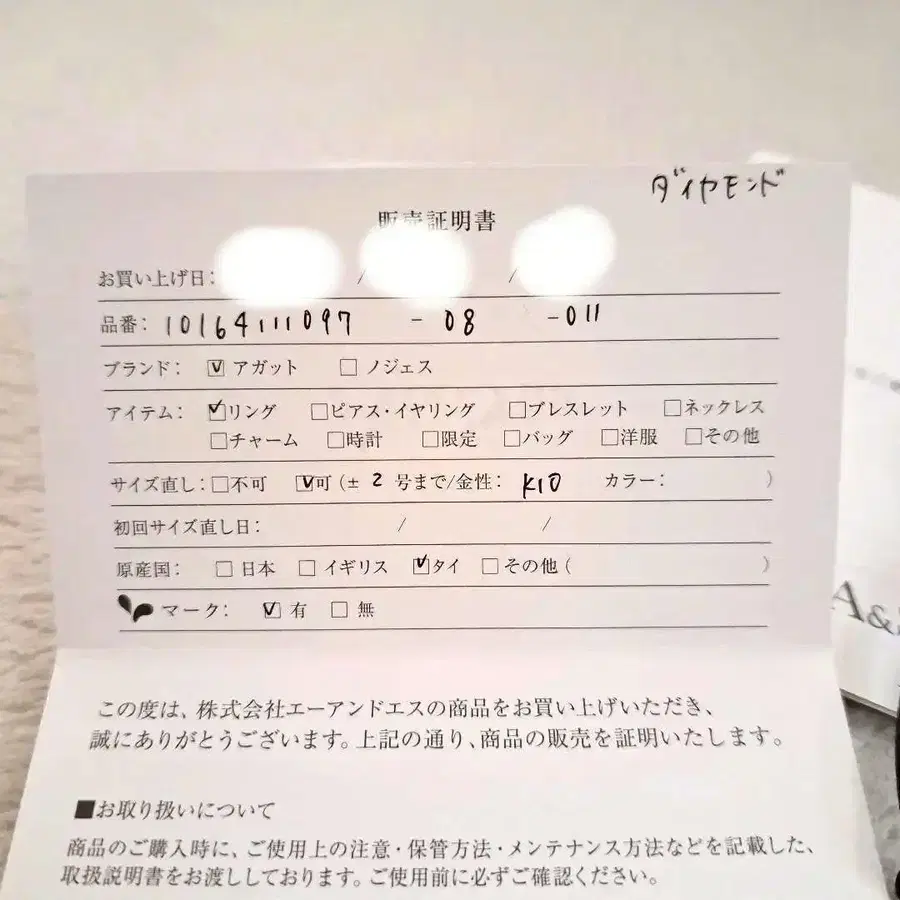 ダイヤモンド
販売証明書
お買い上げ日: / /
品番: 10164111097 - 08 - 011
ブランド: ☑ アガット □ ノジェス
アイテム: ☑リング □ピアス・イヤリング □ブレスレット □ネックレス
□チャーム □時計 □限定 □バッグ □洋服 □その他
サイズ直し: □不可 ☑可(± 2 号まで/金性: K10 カラー: )
初回サイズ直し日: / /
原産国: □ 日本 □ イギリス ☑タイ □その他( )
マーク: ☑ 有 □ 無
この度は、株式会社エーアンドエスの商品をお買い上げいただき、
誠にありがとうございます。上記の通り、商品の販売を証明いたします。
■お取り扱いについて
商品のご購入時に、ご使用上の注意・保管方法・メンテナンス方法などを記載した、
取扱説明書をお渡ししております。ご使用前に必ずご確認ください。
A&